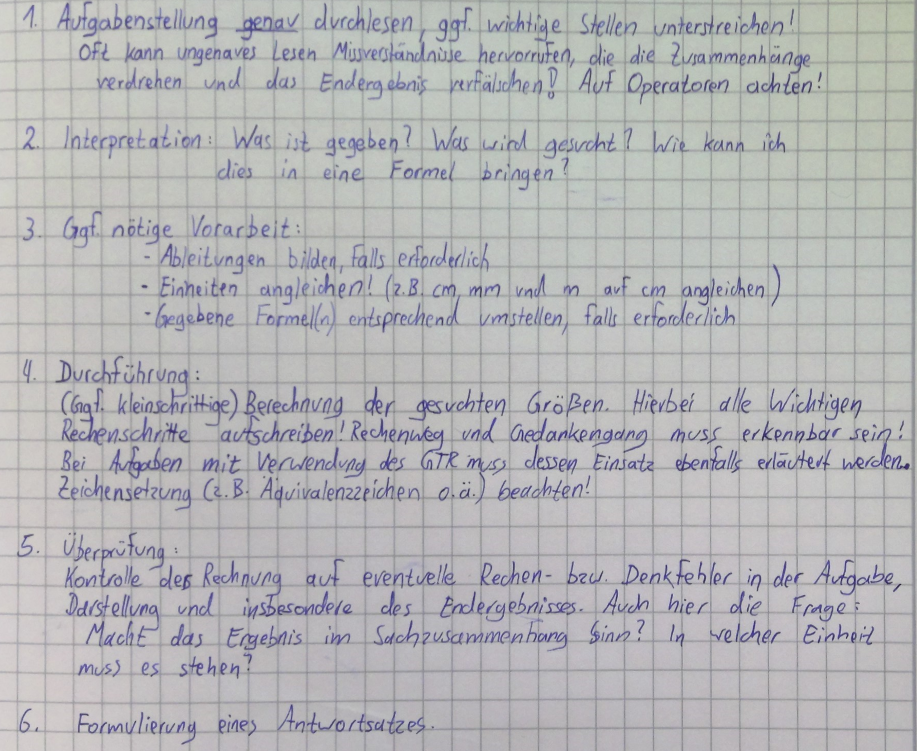 1. Aufgabenstellung genau durchlesen, ggf. wichtige Stellen unterstreichen!
Oft kann ungenaues Lesen Missverständnisse hervorrufen, die die Zusammenhänge
verdrehen und das Endergebnis verfälschen! Auf Operatoren achten!
2. Interpretation: Was ist gegeben? Was wird gesucht? Wie kann ich
dies in eine Formel bringen?
3. Ggf. nötige Vorarbeit:
- Ableitungen bilden, falls erforderlich
- Einheiten angleichen! (z.B. cm, mm und m auf cm angleichen)
- Gegebene Formel(n) entsprechend umstellen, falls erforderlich
4. Durchführung:
(Ggf. kleinschrittige) Berechnung der gesuchten Größen. Hierbei alle Wichtigen
Rechenschritte aufschreiben! Rechenweg und Gedankengang muss erkennbar sein!
Bei Aufgaben mit Verwendung des GTR muss dessen Einsatz ebenfalls erläutert werden.
Zeichensetzung (z.B. Äquivalenzzeichen o.ä.) beachten!
5. Überprüfung:
Kontrolle der Rechnung auf eventuelle Rechen- bzw. Denkfehler in der Aufgabe,
Darstellung und insbesondere des Endergebnisses. Auch hier die Frage:
Macht das Ergebnis im Sachzusammenhang Sinn? In welcher Einheit
muss es stehen?
6. Formulierung eines Antwortsatzes.